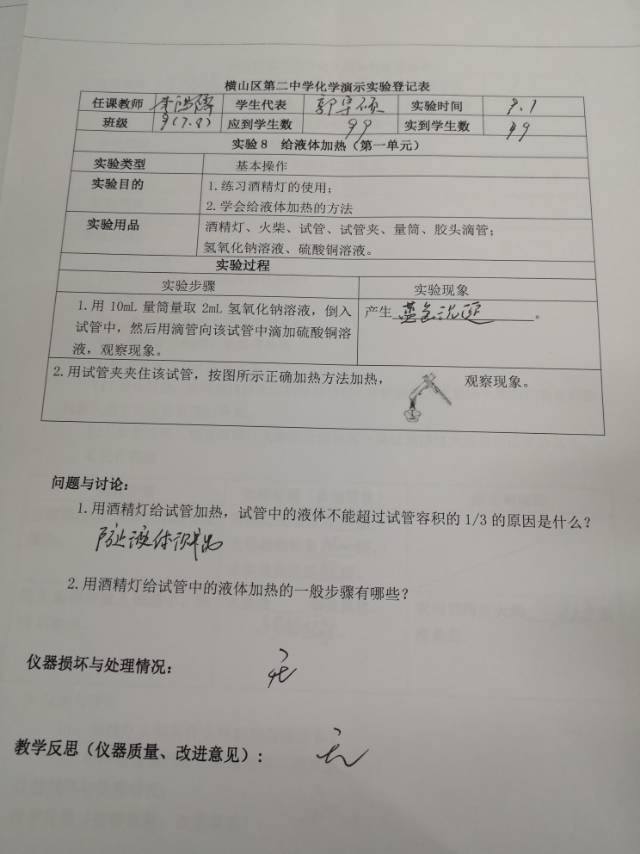 横山区第二中学化学演示实验登记表
任课教师 学生代表 实验时间 9.1
班级 9(7.8) 应到学生数 99 实到学生数 99
实验8 给液体加热（第一单元）
实验类型 基本操作
实验目的 1.练习酒精灯的使用；
2.学会给液体加热的方法
实验用品 酒精灯、火柴、试管、试管夹、量筒、胶头滴管；
氢氧化钠溶液、硫酸铜溶液。
实验过程
实验步骤 实验现象
1.用 10mL 量筒量取 2mL 氢氧化钠溶液，倒入 产生 蓝色沉淀 。
试管中，然后用滴管向该试管中滴加硫酸铜溶
液，观察现象。
2.用试管夹夹住该试管，按图所示正确加热方法加热， 观察现象。
问题与讨论：
1.用酒精灯给试管加热，试管中的液体不能超过试管容积的 1/3 的原因是什么？
防止液体
2.用酒精灯给试管中的液体加热的一般步骤有哪些？
仪器损坏与处理情况： 无
教学反思（仪器质量、改进意见）： 无